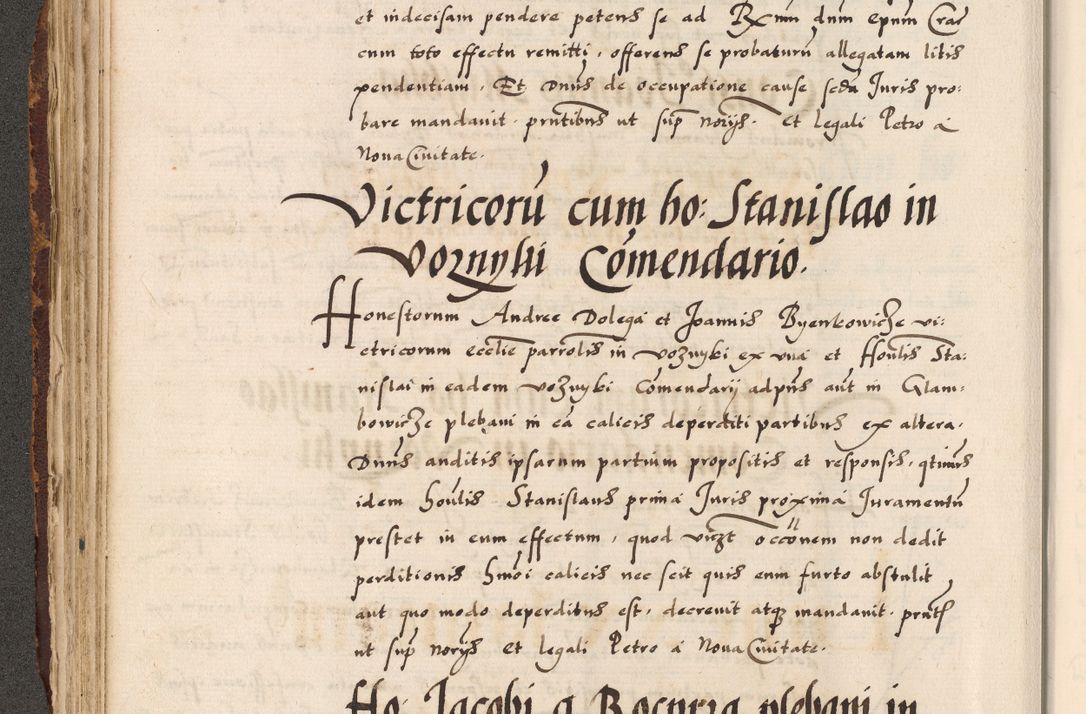 et indecisam pendere petens se ad Rxmum dnm Epum Crac
cum toto effectu remitti, offerens se probaturū allegatam litis
pendentiam. Et Dnus de occupatione cause scdā Juris pro:
bare mandavit. prntibus ut sup norijs. et legali Petro á
Nova Civitate.
Victricorū cum ho: Stanislao in
Voznyki Comendario.
Honestorum Andree Dolega et Joannis Byenkowicze vi:
ctricorum ecclie parrolis in voznyki ex una et Honlis Sta:
nislai in eadem voznyki Comendarij adpns aut in Glam:
bowicze plebani in cā calicis deperditi partibus ex altera.
Dnus auditis ipsarum partium propositis et responsis, qtinus
idem honlis Stanislaus prima Juris proxima Juramentū
prestet in eum effectum, quod viczt occonem non dedit
perditionis hmoi calicis nec scit quis eum furto abstulit
aut quo modo deperditus est, decrevit atq3 mandavit. prntſ
ut sup norijs et legali Petro á Nova Civitate.
Ho: Jacobi a Bocuria plebani in